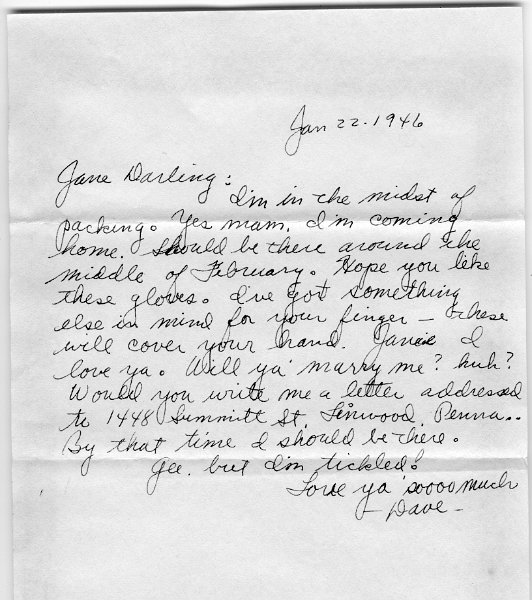 Jan 22-1946
Jane Darling:
I'm in the midst of
packing. Yes mam, I'm coming
home. Should be there around the
middle of February. Hope you like
these gloves. I've got something
else in mind for your finger — these
will cover your hand. Janie I
love ya. Will ya' marry me? huh?
Would you write me a letter addressed
to 1448 Summitt St, Linwood, Penna..
By that time I should be there.
Gee, but I'm tickled!
Love ya' soooo much
- Dave -